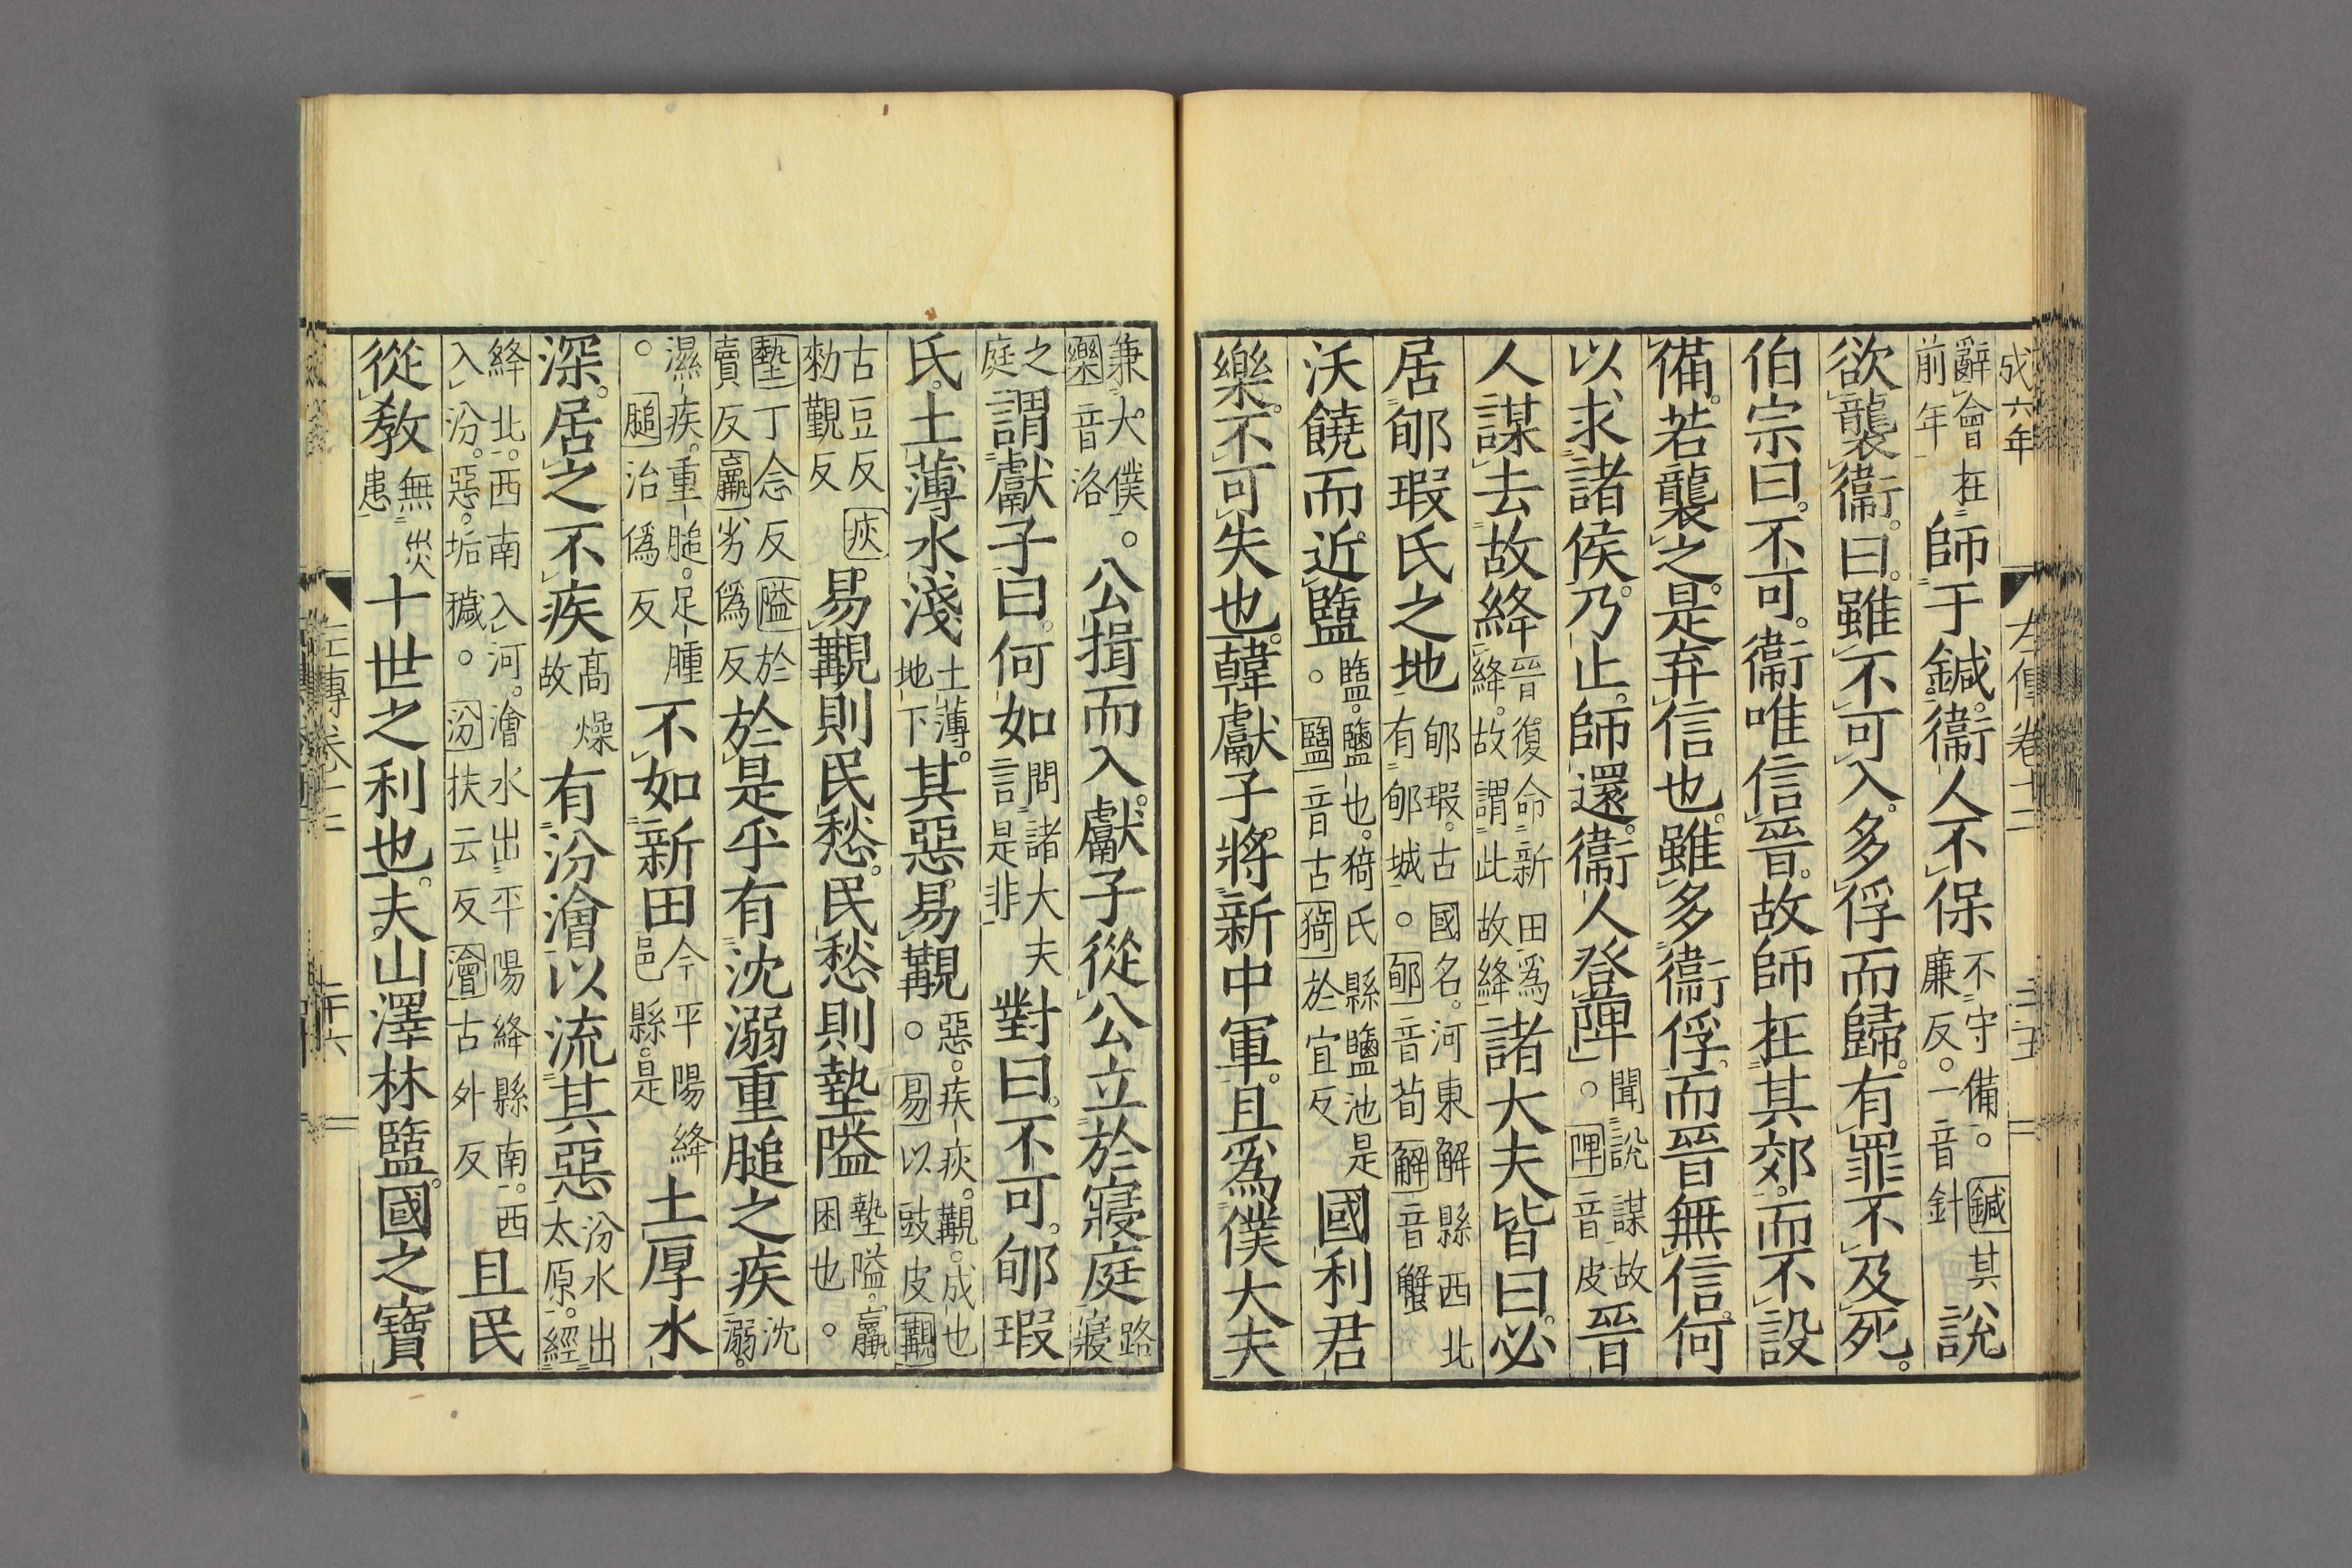 成六年 左傳卷十二 二十五
辭會在前年師于鍼。衞人不保不守備。鍼其廉反。一音針說
欲襲衞。曰。雖不可入。多俘而歸。有罪不及死。
伯宗曰。不可。衞唯信晉。故師在其郊。而不設
備。若襲之。是弃信也。雖多衞俘。而晉無信。何
以求諸侯。乃止。師還。衞人登陴聞說謀故。陴音皮晉
人謀去故絳晉復命新田爲絳。故謂此故絳諸大夫皆曰。必
居郇瑕氏之地郇瑕。古國名。河東解縣西北有郇城。郇音荀解音蟹
沃饒而近盬盬。鹽也。猗氏縣鹽池是。盬音古猗於宜反國利君
樂。不可失也。韓獻子將新中軍。且爲僕大夫
兼大僕。樂音洛公揖而入。獻子從。公立於寢庭路寢
之庭謂獻子曰。何如問諸大夫言是非對曰。不可。郇瑕
氏。土薄水淺土薄地下其惡易覯惡。疾疢。覯。成也。易以豉皮覯
古豆反疢勑覲反易覯則民愁。民愁則墊隘墊隘。羸困也。
墊丁念反隘於賣反羸劣僞反於是乎有沈溺重膇之疾沈溺。
濕疾。重膇。足腫。膇治僞反不如新田今平陽絳邑縣。是土厚水
深。居之不疾高燥故有汾澮以流其惡汾水出太原。經
絳北。西南入河。澮水出平陽絳縣南。西入汾。惡。垢穢。汾扶云反澮古外反且民
從敎無災患十世之利也。夫山澤林盬。國之寶
左傳卷十二 二十六